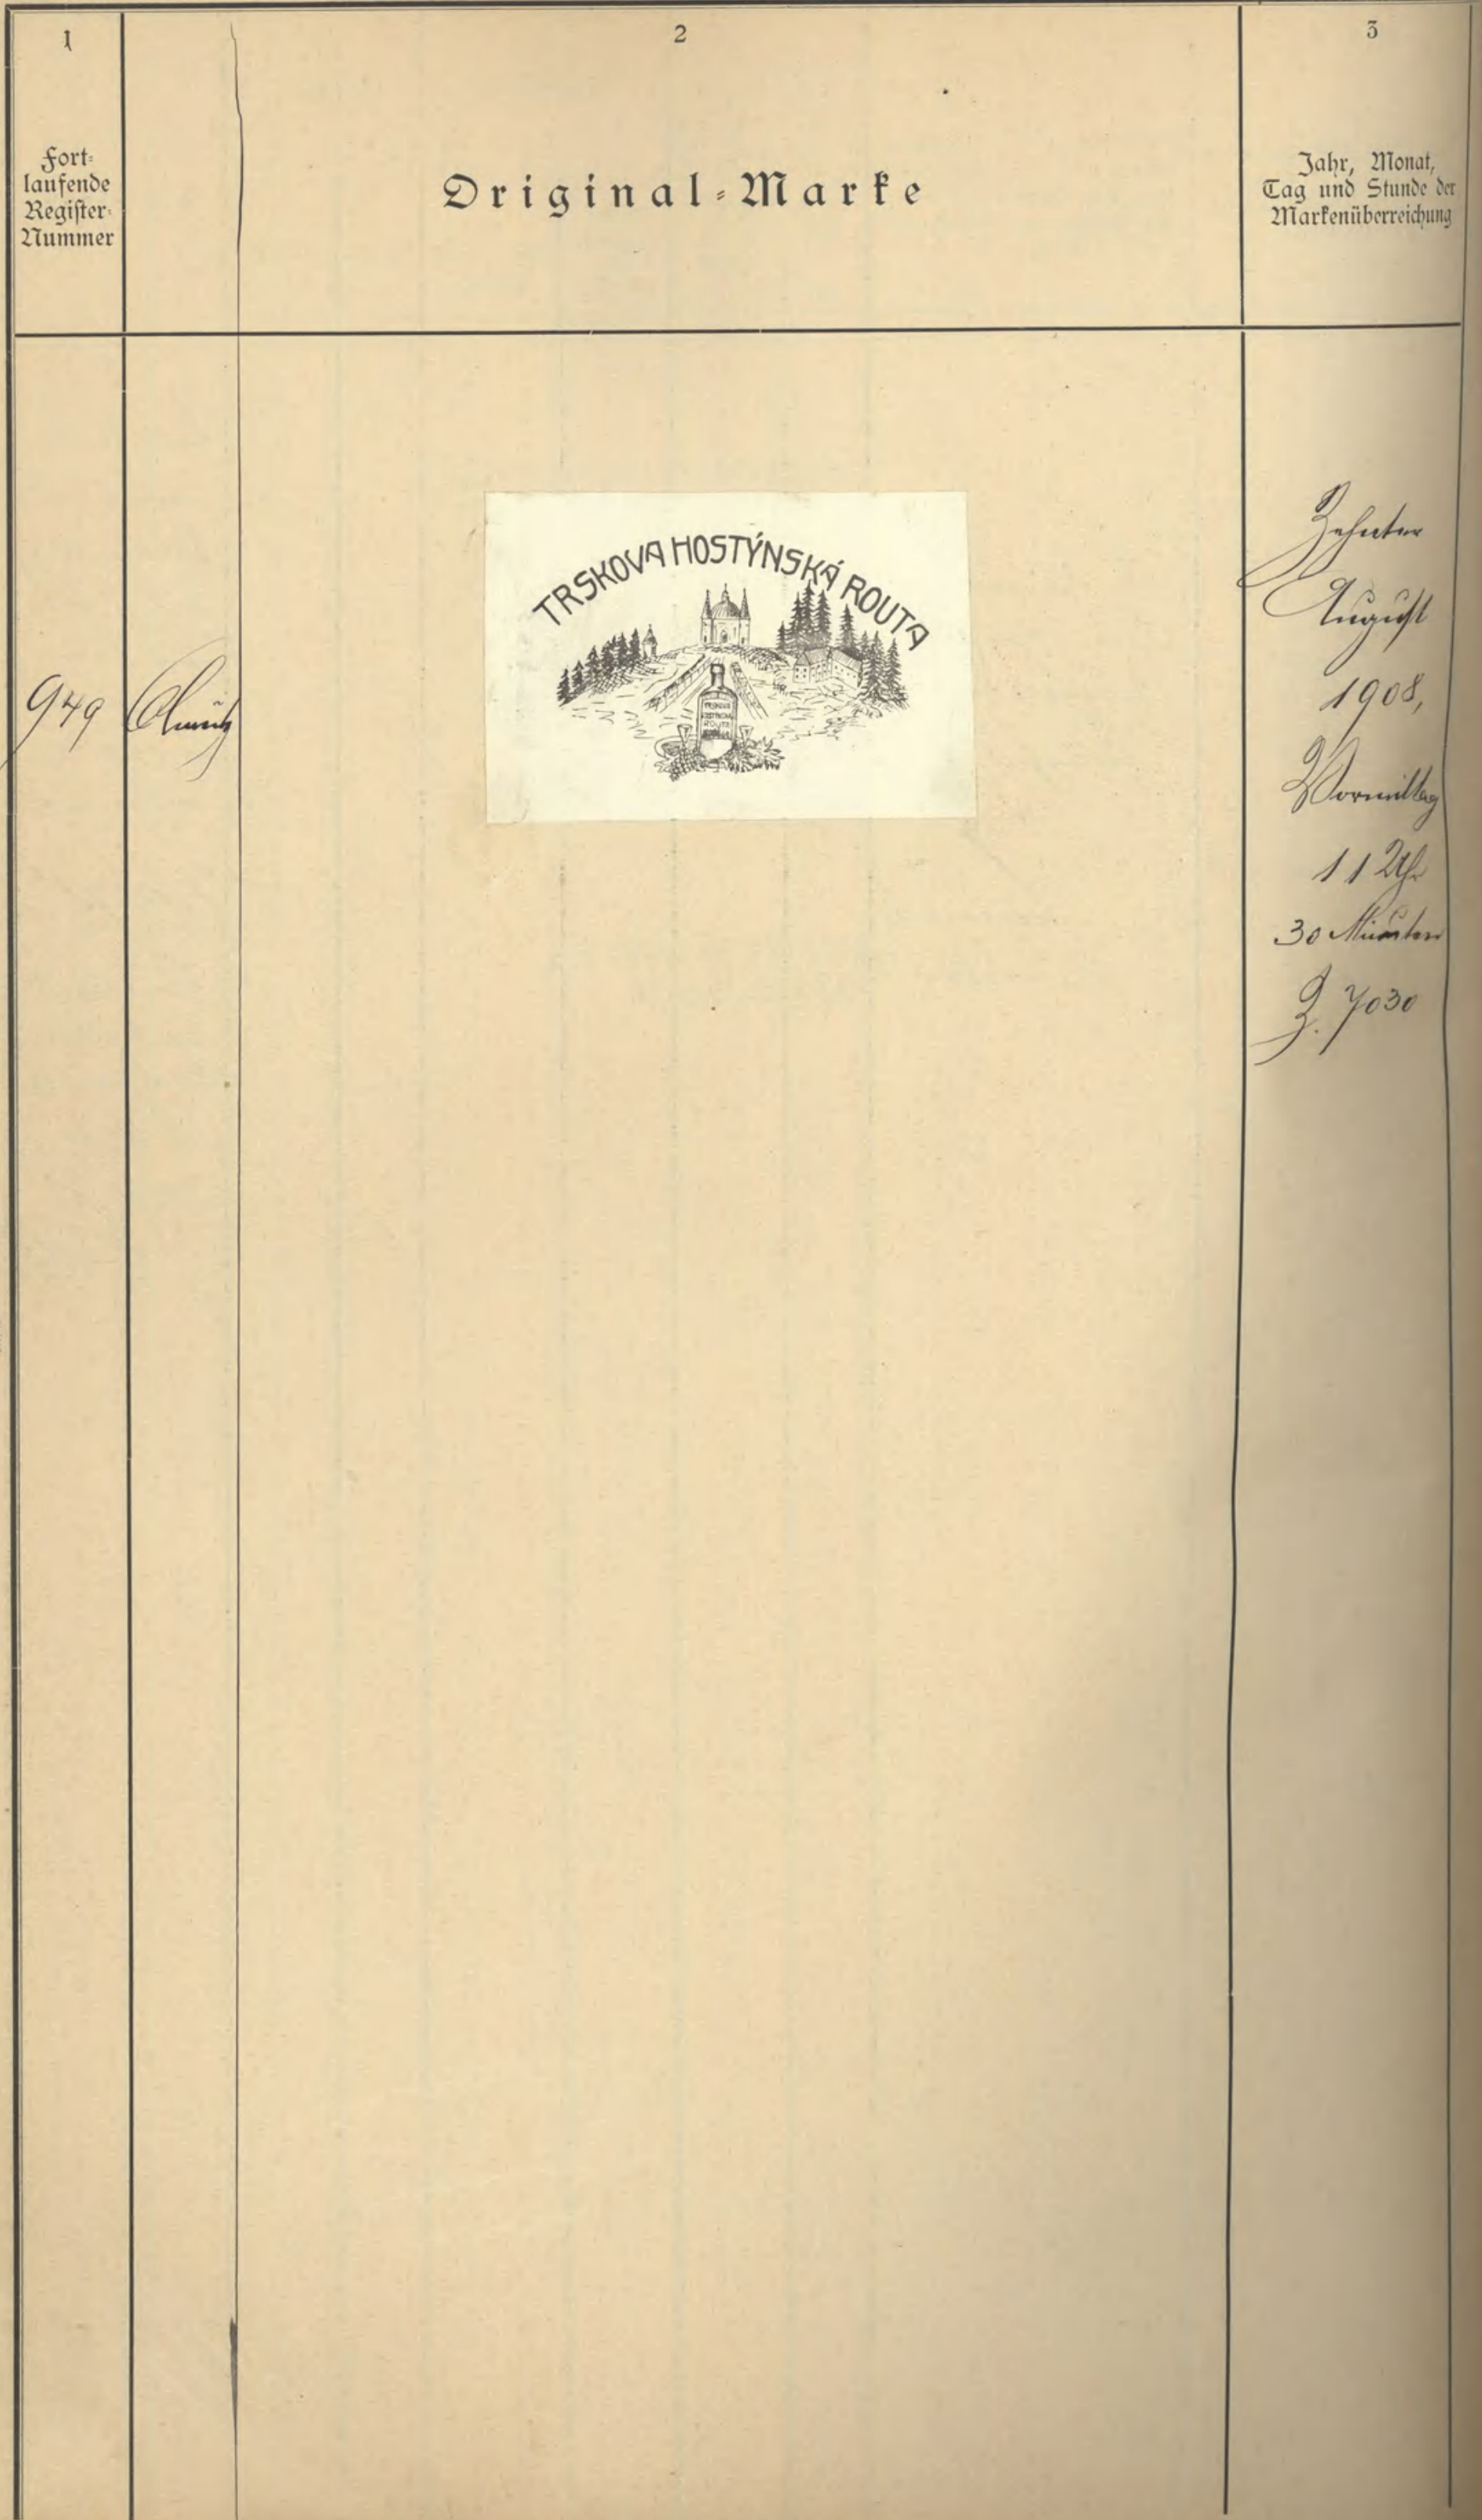 1
2
3
Fort-
laufende
Register-
Nummer
Original-Marke
Jahr, Monat,
Tag und Stunde der
Markenüberreichung
949
Olmütz
TRSKOVA HOSTÝNSKÁ ROUTA
TRSKOVA
HOSTÝNSKÁ
ROUTA
Zehnter
August
1908,
Vormittag
11 Uhr
30 Minuten
Z. 7030